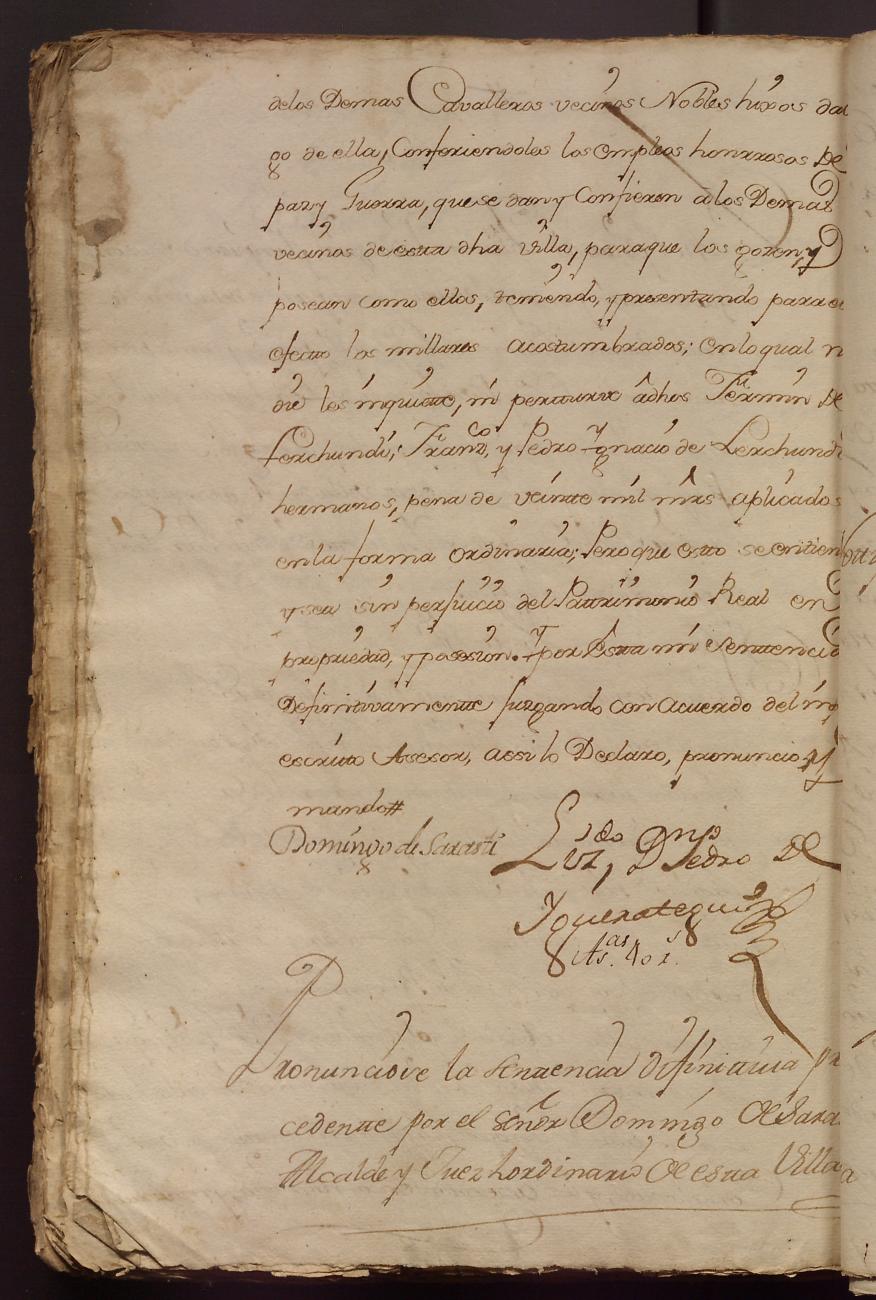 delos Demas Cavalleros vecinos Nobles hixos dal
go de ella, Confexiendoles los empleos honrrosos De
paz y Guerra, que se dan y Confieren a los Demas
vecinos de esta dha villa, para que los gozen, y
posean como ellos, teniendo, y presentando para el
efecto los millares acostumbrados; en lo qual n
die les inquiette, ni pertturve âdhos Fermin De
Lerchundi; Franco, y Pedro Ygnacio de Lerchundi
hermanos, pena de veinte mil mrs aplicados
en la forma ordinaria; Pero que esto se entien
y sea sin perjuicio del Pattrimonio Real en
propriedad, y posesion. Y por Esta mi Sentencia
Definitivamente juzgando con acuerdo del in
escrito Asesor, assi lo Declaro, pronuncio, y
mando
Domingo de Sarasti Lizdo, Dn Pedro De
Yguerategui
As.as 40 rs.
Pronunciose la Sentencia Difinitiva pr
cedente por el señor Domingo De Sara
Alcalde y Juez hordinario De esta Villa